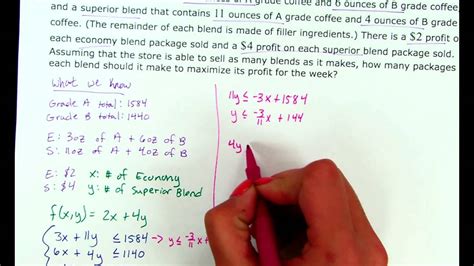 coffee and 6 ounces of B grade coffee,
and a superior blend that contains 11 ounces of A grade coffee and 4 ounces of B grade
coffee. (The remainder of each blend is made of filler ingredients.) There is a $2 profit on
each economy blend package sold and a $4 profit on each superior blend package sold.
Assuming that the store is able to sell as many blends as it makes, how many packages
each blend should it make to maximize its profit for the week?
What we know
Grade A total: 1584
Grade B total: 1440
E: 3oz of A + 6oz of B
S: 11oz of A + 4oz of B
E: $2 x: # of Economy
S: $4 y: # of Superior Blend
f(x,y) = 2x + 4y
3x + 11y ≤ 1584 -> y ≤ -3/11 x +
6x + 4y ≤ 1140
11y ≤ -3x + 1584
y ≤ -3/11 x + 144
4y